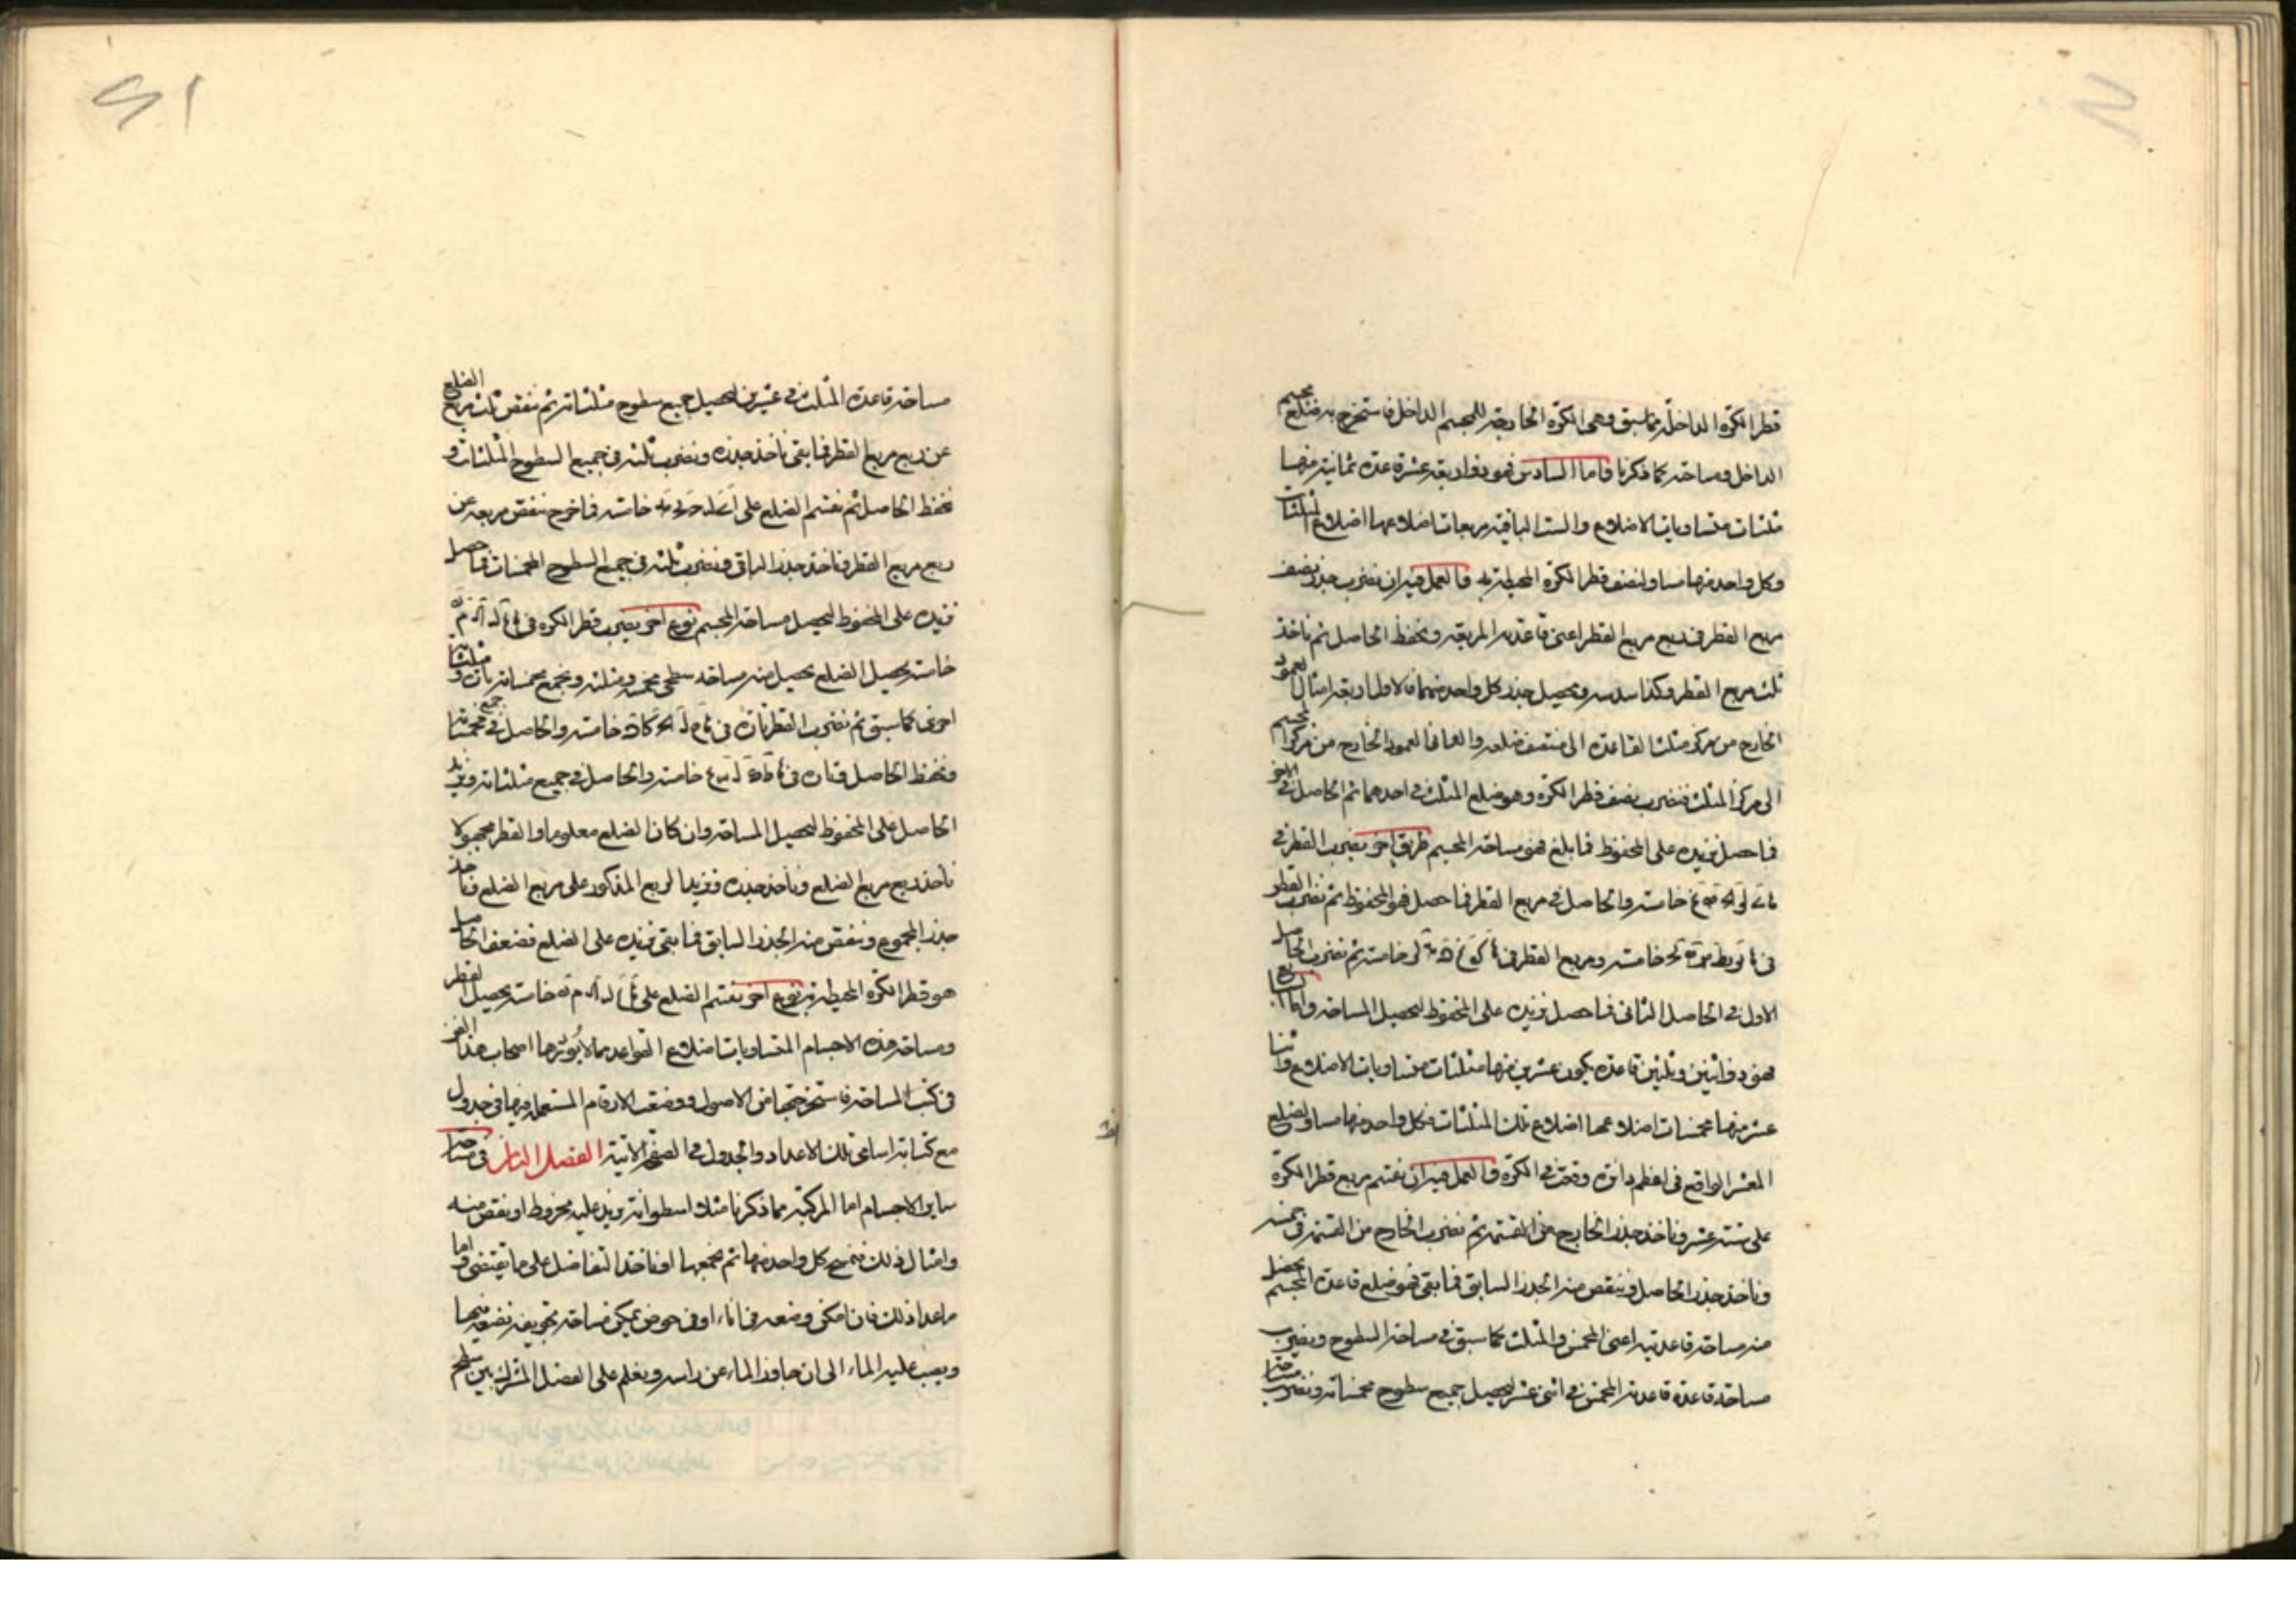 قطر الكرة الداخلة بما سبق وهى الكرة الخارجة للمجسم الداخل فاستخرج به ضلع مجسم
الداخل ومساحته كما ذكرنا واما السادس فهو ذو اربعة عشرة قاعدة ثمانية منها
مثلثات متساويات الاضلاع والست الباقية مربعات اضلاعها اضلاع المثلثات
وكل واحد منها مساو لنصف قطر الكرة المحيطة به فالعمل فيه ان نضرب جذر نصف
مربع القطر فى ربع مربع القطر اعنى قاعدته المربعة ونحفظ الحاصل ثم ناخذ
ثلث مربع القطر وكذا سدسه ونحصل جذر كل واحد منهما فالاول اربعة امثال العمود
الخارج من مركز مثلث القاعدة الى منتصف ضلعه والثانى العمود الخارج من مركز المجسم
الى مركز المثلث فنضرب نصف قطر الكرة وهو ضلع المثلث فى احدهما ثم الحاصل فى الاخر
فما حصل نزيده على المحفوظ فما بلغ فهو مساحة المجسم طريق اخر نضرب القطر فى
خامسة والحاصل فى مربع القطر فما حصل فهو المحفوظ ثم نضرب القطر
خامسة ومربع القطر فى خامسة ثم نضرب الحاصل
الاول فى الحاصل الثانى فما حصل نزيده على المحفوظ ليحصل المساحة واما السابع
فهو ذو اثنين وثلثين قاعدة يكون عشرين منها مثلثات متساويات الاضلاع واثنا
عشر منها مخمسات اضلاعها اضلاع تلك المثلثات وكل واحد منها مساو لضلع
المعشر الواقع فى اعظم دائرة وقعت فى الكرة والعمل فيه ان نقسم مربع قطر الكرة
على ستة عشر وناخذ جذر الخارج من القسمة ثم نضرب الخارج من القسمة فى خمسة
وناخذ جذر الحاصل وننقص منه الجذر السابق فما بقى فهو ضلع قاعدة المجسم يحصل
منه مساحة قاعدتيه اعنى المخمس والمثلث كما سبق فى مساحة السطوح ونضرب
مساحة قاعدة قاعدته المخمس فى اثنى عشر ليحصل جميع سطوح مخمساته ونضرب مساحة
مساحة قاعدة المثلث فى عشرين ليحصل جميع سطوح مثلثاته ثم ننقص ثلث مربع الضلع
عن ربع مربع القطر فما بقى ناخذ جذره ونضرب ثلثه فى جميع السطوح المثلثات و
نحفظ الحاصل ثم نقسم الضلع على خامسة فما خرج ننقص مربعه عن
ربع مربع القطر وناخذ جذر الباقى ونضرب ثلثه فى جميع السطوح المخمسات فما حصل
نزيده على المحفوظ ليحصل مساحة المجسم نوع اخر نضرب قطر الكرة فى
خامسة يحصل الضلع يحصل منه مساحة سطحى مخمسه ومثلثه ونجمع مخمساته بان ومثلثا
اخرى كما سبق ثم نضرب القطر ثان فى خامسة والحاصل فى جميع مخمساتها
ونحفظ الحاصل فثان فى خامسة والحاصل فى جميع مثلثاته ونزيد
الحاصل على المحفوظ ليحصل المساحة وان كان الضلع معلوما والقطر مجهولا
ناخذ ربع مربع الضلع وناخذ جذره ونزيد الربع المذكور على مربع الضلع وناخذ
جذر المجموع وننقص منه الجذر السابق فما بقى نزيده على الضلع فضعف الحاصل
هو قطر الكرة المحيطة به نوع اخر نقسم الضلع على خامسة يحصل القطر
ومساحة هذه الاجسام المتساويات اضلاع القواعد مما لا يوردها اصحاب هذا الفن
فى كتب المساحة فاستخرجتها من الاصول ووضعت الارقام المستعملة فيها فى جدول
مع كتابة اسامى تلك الاعداد والجدول فى الصفحة الاتية الفصل الثامن فى مساحة
سائر الاجسام اما المركبة مما ذكرنا مثلا اسطوانة نزيد عليه مخروط او نقص منه
وامثال ذلك فنمسح كل واحد منها ثم نجمعها او ناخذ التفاضل على ما يقتضى واما
ما عدا ذلك فان امكن وضعه فى اناء او فى حوض يمكن مساحة تجويفه نضعه فيها
ونصب عليه الماء الى ان جاوز الماء عن راسه ونعلم على الفصل المشترك بين سطح